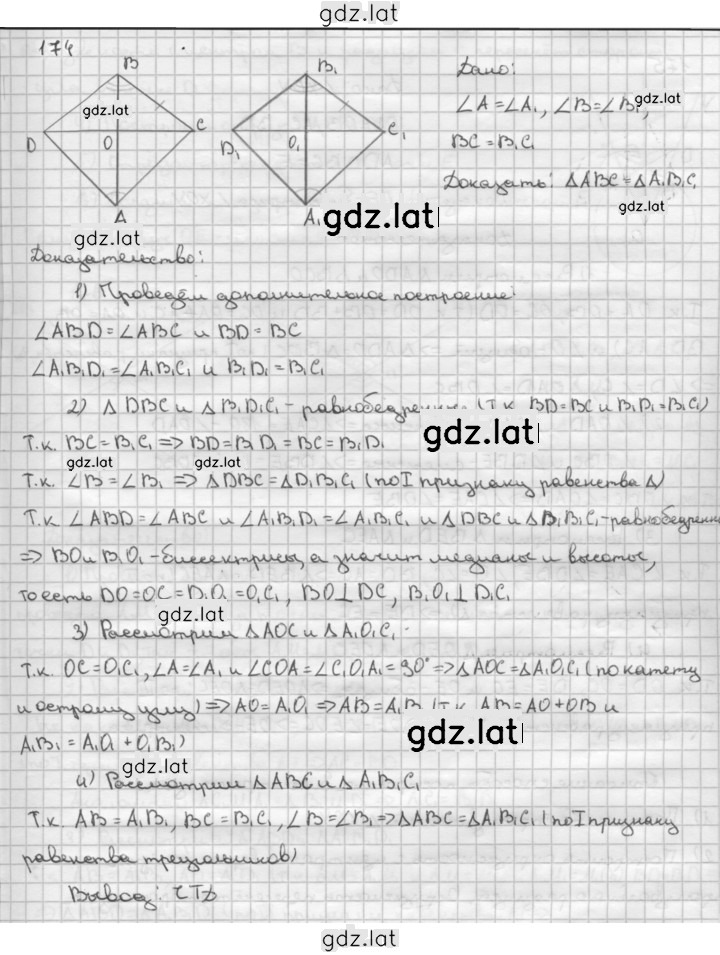 gdz.lat
174
B B₁
gdz.lat
D O C D₁ O₁ C₁
A A₁
Дано:
∠A=∠A₁, ∠B=∠B₁, gdz.lat
BC = B₁C₁
Доказать: ΔABC=ΔA₁B₁C₁
gdz.lat
gdz.lat
gdz.lat
Доказательство:
1) Проведём дополнительное построение:
∠ABD=∠ABC и BD=BC
∠A₁B₁D₁=∠A₁B₁C₁ и B₁D₁=B₁C₁
2) Δ DBC и Δ B₁D₁C₁ - (т.к. BD=BC и B₁D₁=B₁C₁)
gdz.lat
Т.к. BC=B₁C₁ => BD=B₁D₁=BC=B₁D₁
gdz.lat gdz.lat
Т.к. ∠B=∠B₁ => ΔDBC=ΔD₁B₁C₁ (по I признаку равенства Δ)
Т.к ∠ABD=∠ABC и ∠A₁B₁D₁=∠A₁B₁C₁ и ΔDBC и ΔB₁B₁C₁-равнобедренные
=> BO и B₁O₁ - биссектрисы, а значит медианы и высоты,
то есть DO=OC=D₁O₁=O₁C₁, BO⊥DC, B₁O₁⊥D₁C₁
gdz.lat
3) Рассмотрим ΔAOC и ΔA₁O₁C₁
Т.к. OC=O₁C₁, ∠A=∠A₁ и ∠COA=∠C₁O₁A₁=90° => ΔAOC=ΔA₁O₁C₁ (по катету
и острому углу) => AO=A₁O₁ => AB=A₁B₁ (т.к. AB=AO+OB и
gdz.lat
A₁B₁=A₁O₁+O₁B₁)
gdz.lat
4) Рассмотрим ΔABC и ΔA₁B₁C₁
Т.к. AB=A₁B₁, BC=B₁C₁, ∠B=∠B₁ => ΔABC=ΔA₁B₁C₁ (по I признаку
равенства треугольников)
Вывод: ЧТД
gdz.lat